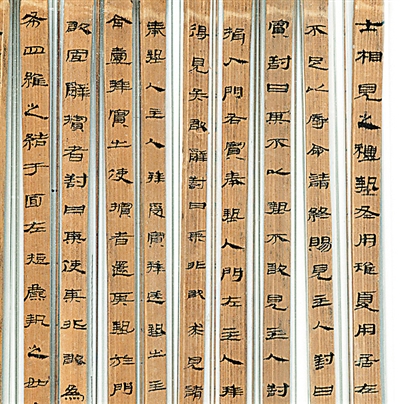 士相見之禮摯冬用雉夏用居左
不足以辱命請終賜見主人對曰
賓對曰某不以摯不敢見主人對
揖入門右賓奉摯入門左主人拜
得見矣敢辭對曰某非敢求見請
奉摯入主人拜受賓拜送摯出主
命壹拜賓出使擯者還其摯於門
敢固辭擯者對曰某使某非敢為
布四維之結于面左麛執之如